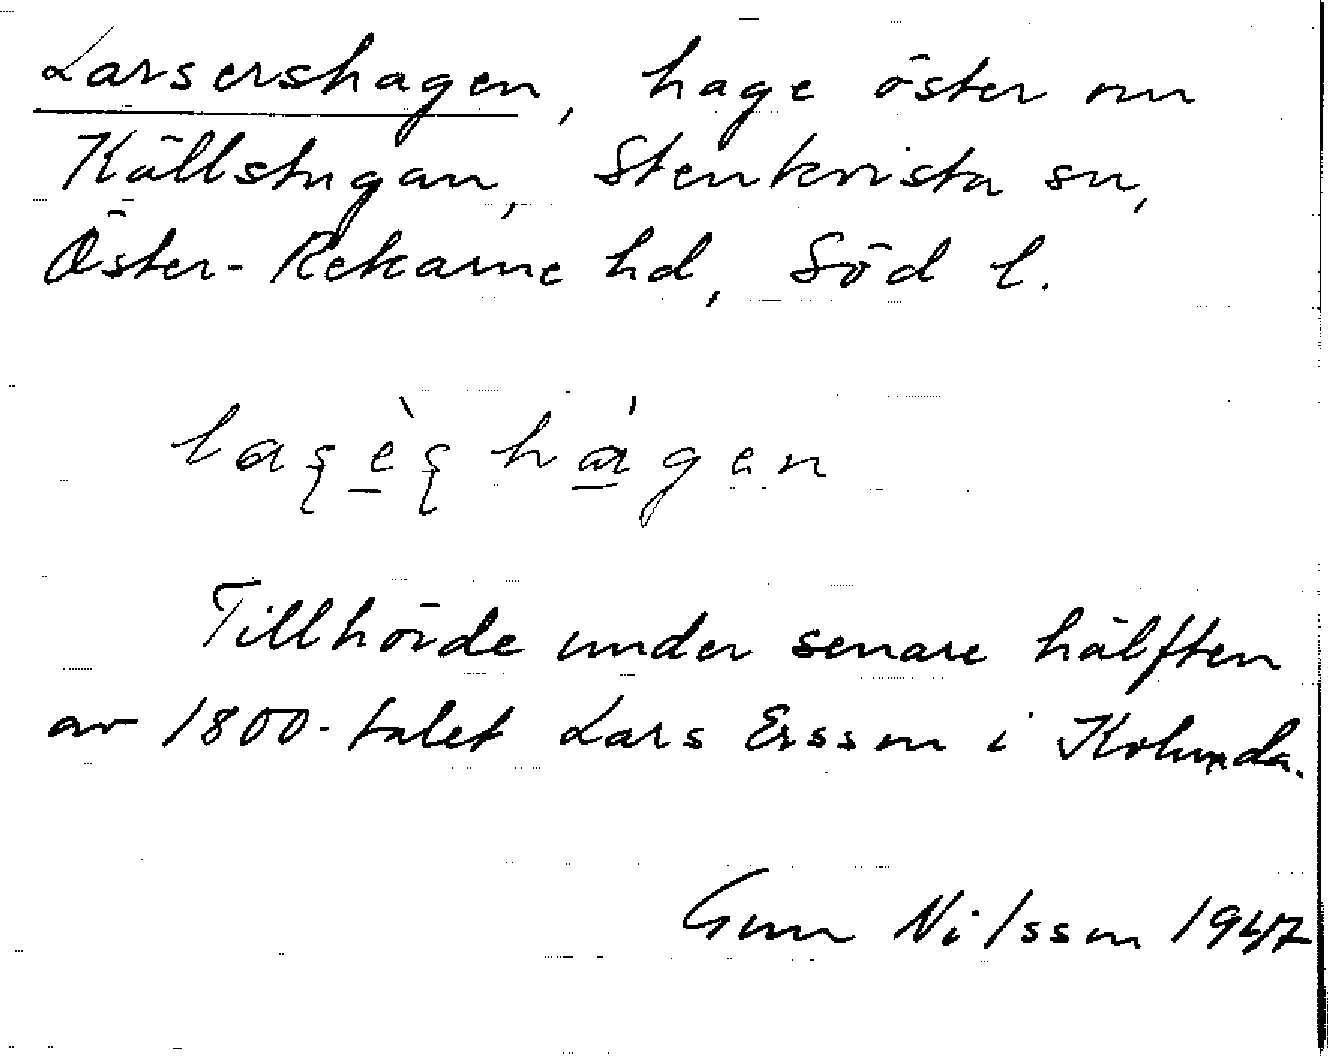 Larsershagen, hage öster om
Källstugan, Stenkvista sn,
Öster-Rekarne hd, Söd l.
laʂèʂhágen
Tillhörde under senare hälften
av 1800-talet Lars Ersson i Kolunda.
Gun Nilsson 1947